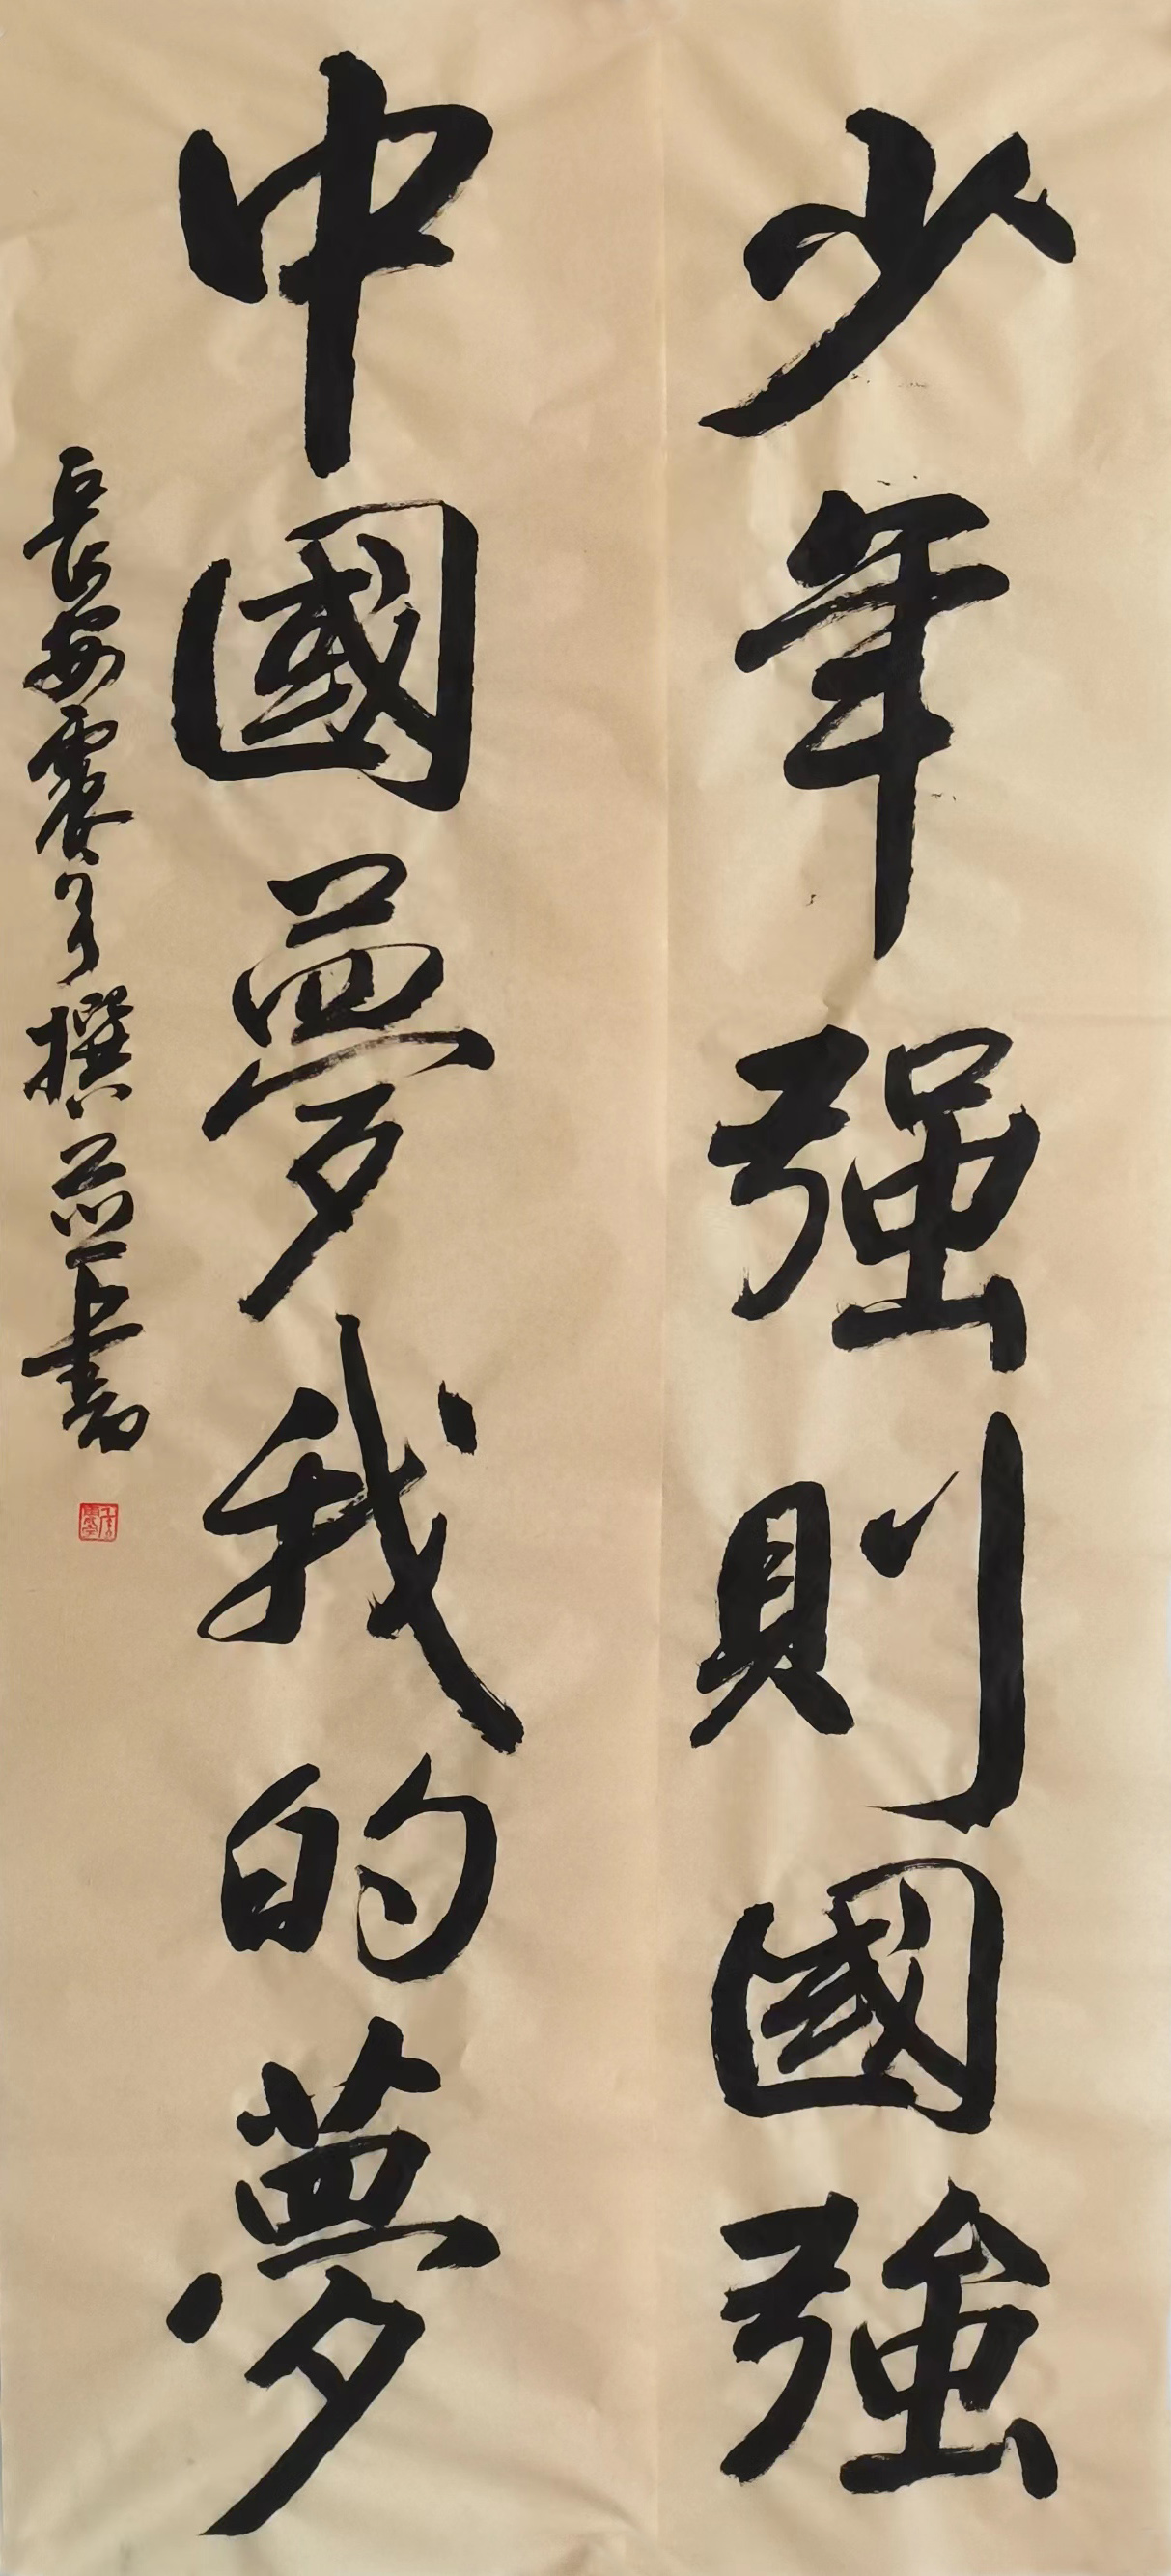 少年强則國強
中國夢我的夢
長安震了撰并書